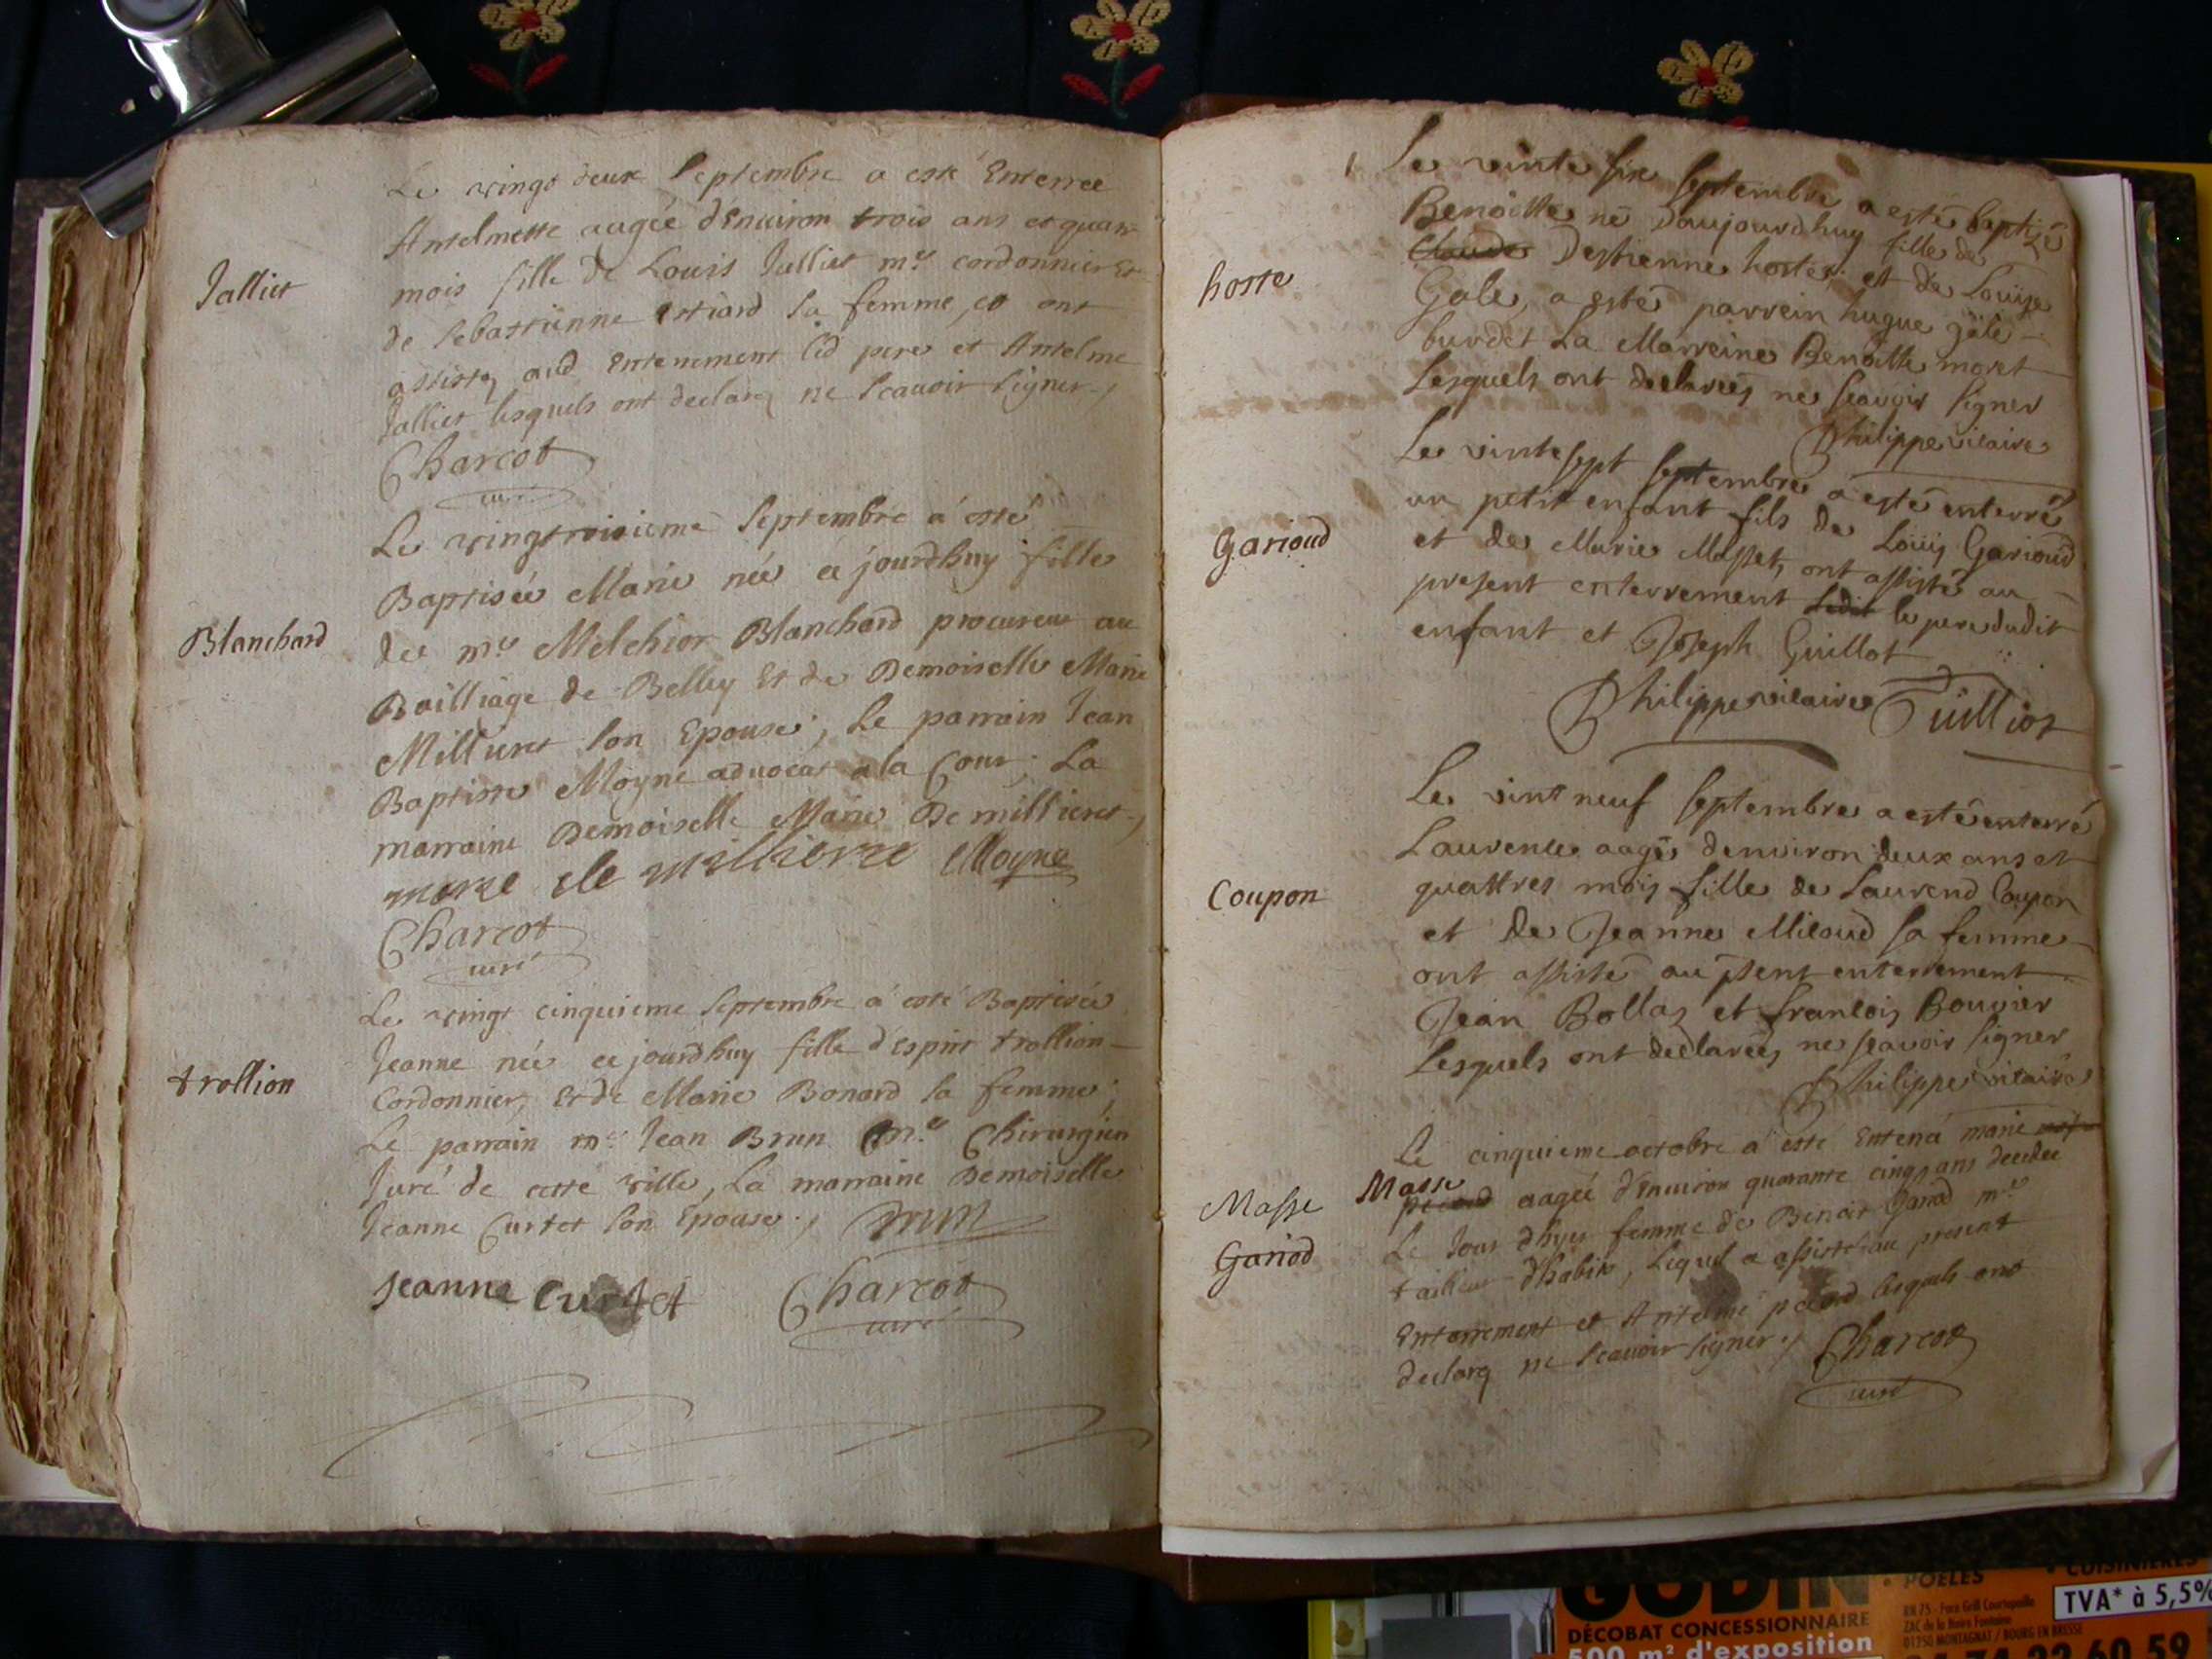 Le vingt deux septembre a esté Enterrée
Antelmette augée d'Enuiron trois ans et quatr
mois fille de Louis Jalliet mre cordonnier Et
Jalliet
de Sebastienne sa femme, et ont
assistez aud Enterrement led pere et Antelme
Jalliet lesquels ont declarez ne scauoir signer
Charcot
curé
Le vingtroisieme septembre a esté
Baptisée Marie née ce jourdhuy fille
Blanchard
de mre Melchior Blanchard procureur au
Bailliage de Belley Et de Demoiselle Marie
Millieret son Epouse; Le parrain Jean
Baptiste Moyne aduocat a la Cour; La
marraine Demoiselle Marie De millieret
marie de millieret Moyne
Charcot
curé
Le vingt cinquieme septembre a esté Baptisée
Jeanne née ce jourdhuy fille d'Esprit trollion
trollion
Cordonnier, Et de Marie Bonard sa femme;
Le parrain mre Jean Brun mre Chirurgien
Juré de cette ville, La marraine Demoiselle
Jeanne Curtet son Epouse. Brun
jeanne Curtet Charcot
curé
Le vinte six septembre a esté baptizé
Benoitte né d'aujourdhuy fille de
hoste
Claude D'estienne hoste, et de Louise
Gole, a esté parrein hugue gole
burdet La Marreine Benoitte moret
Lesquels ont declarez ne scavoir signer
Philippe vicaire
Le vinte sept septembre a esté enterré
un petit enfant fils de Loüis Garioud
Garioud
et de Marie Masset, ont assisté au
present enterrement ledit le pere dudit
enfant et Joseph Guillot
Philippe vicaire Guilliot
Le vint neuf septembre a esté enterré
Laurence aagée d'environ deux ans et
Coupon
quattres mois fille de Laurend Coupon
et de Jeanne Micoud sa femme
ont assisté au psent enterrement
Jean Bollaz et francois Bouvier
Lesquels ont declarez ne scavoir signer
Philippe vicaire
Le cinquieme octobre a esté Enterrá marie
Masse Masse
picord aagée d'Enuiron quarante cinq ans decedee
Gariod
Le Jour d'hyer femme de Benoit Gariod mre
tailleur d'habits, Lequel a assisté au present
Enterrement et Antelme picord lesquels ont
declarez ne scauoir signer Charcot
curé
GODIN
DÉCOBAT CONCESSIONNAIRE
500 m² d'exposition
• POELES • CUISINIERES
RN 75 - Face Grill Courtepaille
01250 MONTAGNAT / BOURG EN BRESSE
TVA* à 5,5%